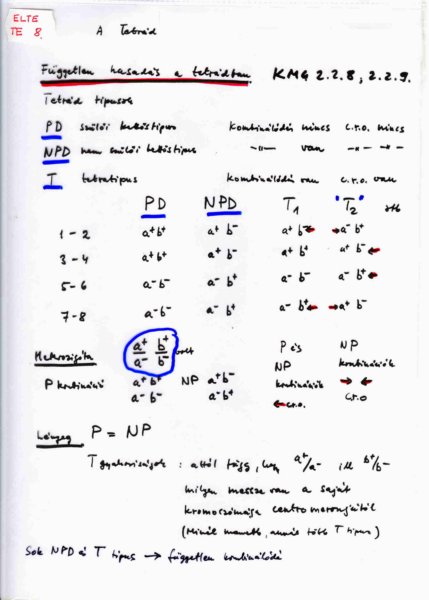 ELTE
TE 8.
A Tetrád
Független hasadás a tetrádban KMG 2.2.8, 2.2.9.
Tetrád típusok
PD szülői kettőstípus kombinálódás nincs c.r.o. nincs
NPD nem szülői kettőstípus -"- van -"- -"-
T tetratípus kombinálódás van c.r.o. van
PD NPD T1 "T2" stb
1-2 a+b+ a+b- a+b- a+b-
3-4 a+b+ a+b- a+b+ a+b-
5-6 a-b- a-b+ a-b- a-b+
7-8 a-b- a-b+ a-b+ a+b-
Heterozigóta a+/a- b+/b- volt P és NP
P kombináció a+b+ NP a+b- NP kombinációk
a-b- a-b+ kombinációk
c.r.o. c.r.o
Lényeg P = NP
T gyakoriságok : attól függ, hogy a+/a- ill b+/b-
milyen messze van a saját
kromoszómája centromeronjától
(Minél messzebb, annál több T típus)
Sok NPD és T típus → független kombinálódás